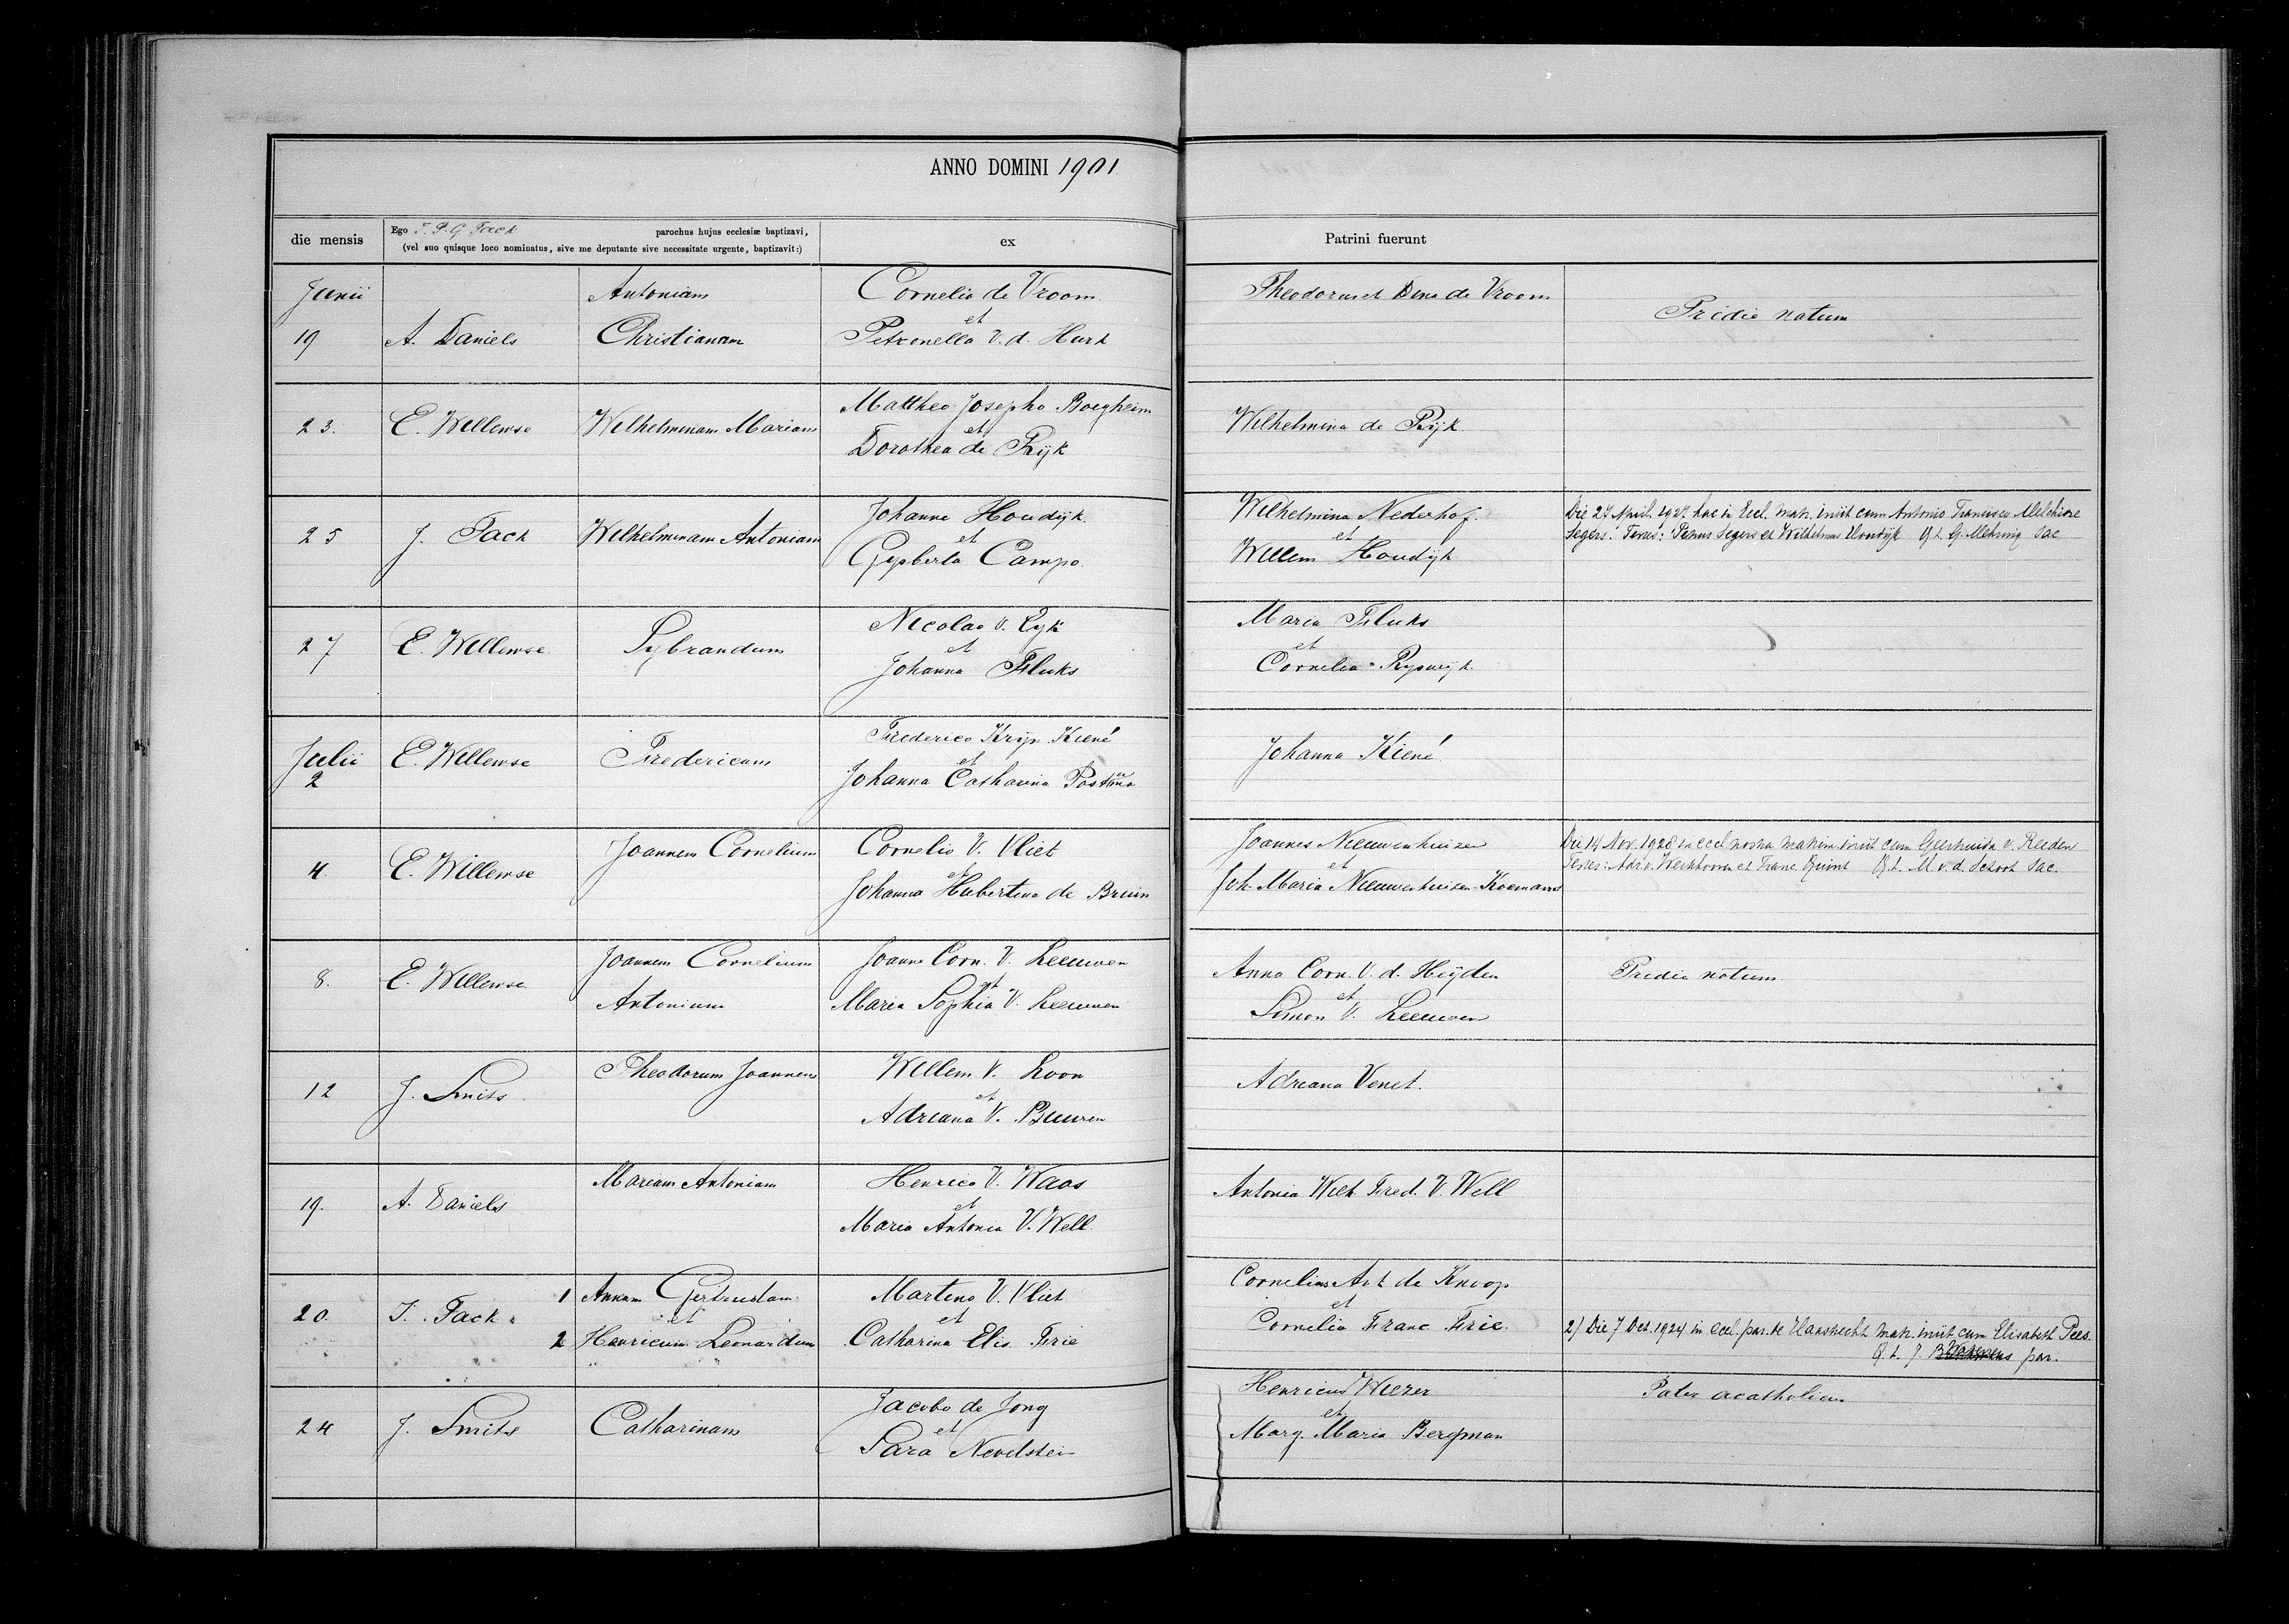 ANNO DOMINI 1901
die mensis
Ego J. P. G. Tack parochus hujus ecclesiæ baptizavi,
(vel suo quisque loco nominatus, sive me deputante sive necessitate urgente, baptizavit:)
ex
Patrini fuerunt
Junii
19
A. Daniels
Antoniam
Christianam
Cornelio de Vroom
et
Petronella v. d. Hurk
Theodorus et Dina de Vroom
Pridie natum
23.
E. Willemse
Wilhelminam Mariam
Mattheo Josepho Boegheim
et
Dorothea de Rijk
Wilhelmina de Rijk
25
J. Tack
Wilhelminam Antoniam
Johanne Houdijk
et
Gysberta Campo.
Wilhelmina Nederhof.
et
Willem Houdijk
Die 27 April. 1927 hac in Eccl. matr. iniit cum Antonio Francisco Melchiore
Segers. Testes: Petrus Segers et Wilhelmus Houdijk Q. t. G. Mehring Sac
27
E. Willemse
Sybrandum
Nicolao v. Eyk
et
Johanna Fluks
Maria Fluks
et
Cornelia Ryswijk
Julii
2
E. Willemse
Fredericum
Frederico Krijn Kiené
et
Johanna Catharina Postma
Johanna Kiené
4.
E. Willemse
Joannem Cornelium
Cornelio V. Vliet
et
Johanna Hubertina de Bruin
Joannes Nieuwenhuizen
et
Joh. Maria Nieuwenhuizen-Koemans
Die 14 Nov. 1928 in eccl. nostra matrim. iniit cum Geertruida v. Reeden
Testes: Adr. v. Werkhoven et Franc. Quint Q. t. M. v. d. Schoot Sac.
8.
E. Willemse
Joannem Cornelium
Antonium
Joanne Corn. V. Leeuwen
et
Maria Sophia V. Leeuwen
Anna Corn. V. d. Heijden
et
Simon V. Leeuwen
Pridie natum
12
J. Smits
Theodorum Joannem
Willem V. Loon
et
Adriana V. Buuren
Adriana Venet.
19.
A. Daniels
Mariam Antoniam
Henrico V. Waas
et
Maria Antonia V. Well.
Antonia Wilh. Fred. V. Well
20.
J. Tack
1 Annam Gertrudam
et
2 Henricum Leonardum
Martino V. Vliet
et
Catharina Elis. Frie
Cornelius Ant de Knoop
et
Cornelia Franc Frie.
2) Die 7 Oct. 1924 in eccl. par. te Haastrecht matr. iniit cum Elisabeth Pees.
Q. t. J. par.
24
J. Smits
Catharinam
Jacobo de Jong
et
Sara Nevelstein
Henricus Wiezer
et
Marg. Maria Bergman
Pater acatholicus